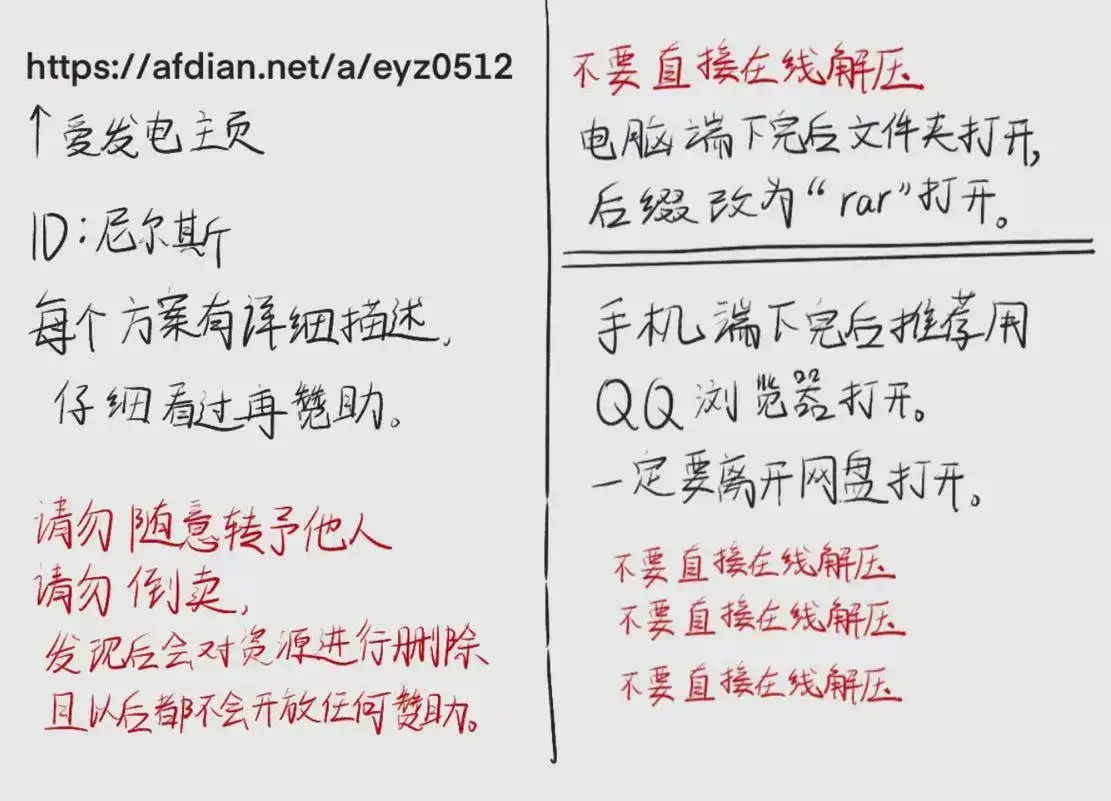 https://afdian.net/a/eyz0512
↑爱发电主页
ID：尼尔斯
每个方案有详细描述，
仔细看过再赞助。
请勿随意转予他人
请勿倒卖，
发现后会对资源进行删除
且以后都不会开放任何赞助。
不要直接在线解压
电脑端下完后文件夹打开，
后缀改为“rar”打开。
手机端下完后推荐用
QQ浏览器打开。
一定要离开网盘打开。
不要直接在线解压
不要直接在线解压
不要直接在线解压